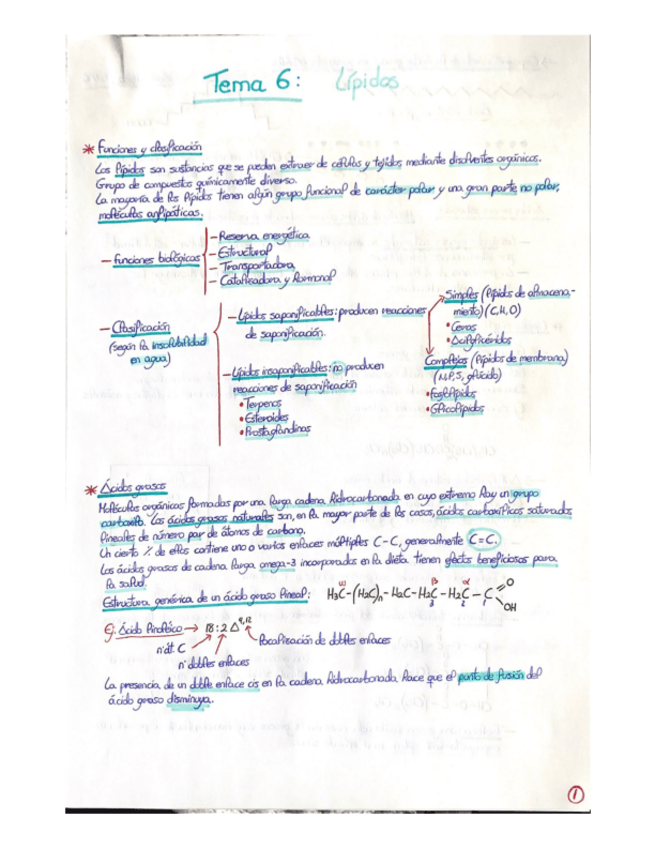 Tema 6: Lípidos
* Funciones y clasificación
Los lípidos son sustancias que se pueden extraer de células y tejidos mediante disolventes orgánicos.
Grupo de compuestos químicamente diverso.
La mayoría de los lípidos tienen algún grupo funcional de carácter polar y una gran parte no polar,
moléculas anfipáticas.
- Funciones biológicas
- Reserva energética
- Estructural
- Transportadora
- Catalizadora y hormonal
- Clasificación
(según la insolubilidad
en agua)
- Lípidos saponificables: producen reacciones
de saponificación.
Simples (lípidos de almacena-
miento) (C, H, O)
• Ceras
• Acilglicéridos
Complejos (lípidos de membrana)
(N, P, S, glúcido)
• Fosfolípidos
• Glicolípidos
- Lípidos insaponificables: no producen
reacciones de saponificación
• Terpenos
• Esteroides
• Prostaglandinas
* Ácidos grasos
Moléculas orgánicas formadas por una larga cadena hidrocarbonada en cuyo extremo hay un grupo
carboxilo. Los ácidos grasos naturales son, en la mayor parte de los casos, ácidos carboxílicos saturados
lineales de número par de átomos de carbono.
Un cierto % de ellos contiene uno o varios enlaces múltiples C-C, generalmente C=C.
Los ácidos grasos de cadena larga omega-3 incorporados en la dieta tienen efectos beneficiosos para
la salud.
Estructura genérica de un ácido graso lineal:
ω β α
H₃C-(H₂C)n-H₂C-H₂C-H₂C-C
O
OH
3 2 1
Ej: Ácido linoleico → 18:2 Δ9,12
nº át. C
nº dobles enlaces
localización de dobles enlaces
La presencia de un doble enlace cis en la cadena hidrocarbonada hace que el punto de fusión del
ácido graso disminuya.
1